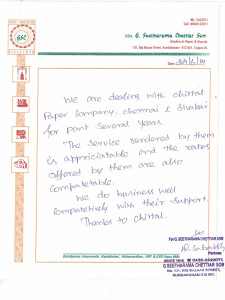 GSC
M/s. G. Seetharama Chettiar Son
Date
We are dealing with chittal
Paper Company, Chennai & Shabai
for past Several Years.
The Service rendered by them
is appriciatable and the rates
offered by them are also
Competetable.
We do business well
Competetively with their Support.
Thanks to chittal.
For G. SEETHARAMA CHETTIAR SON
Partner.
G. SEETHARAMA CHETTIAR SON
No. 131, BIG BAZAAR STREET,
KUMBAKONAM-612 001.